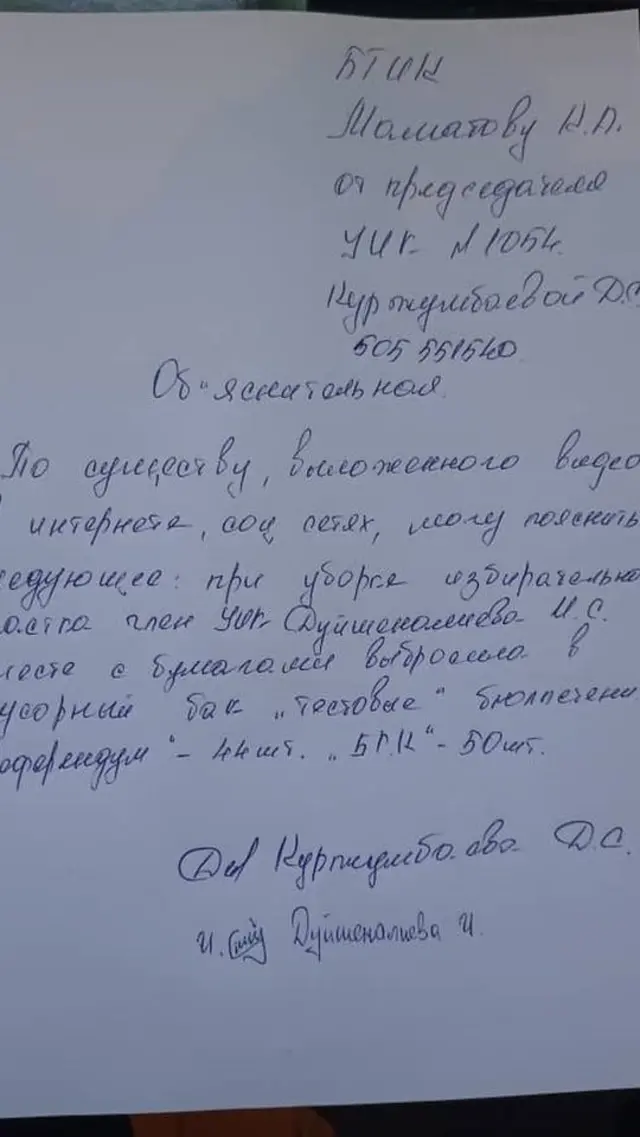 БТИК
Маматову Н.А.
от председателя
УИК №1054.
Куржумбаевой Д.С
505 551540
Об"яснательная
По существу, выложенного видео
интернете, соц сетях, могу пояснить
едующее: при уборке избирательно
астка член УИК Дуйшеналиева И.С.
месте с бумагами выбросила в
усорный бак „тестовые" бюллетени
еферендум"- 44 шт. „БГК"- 50 шт.
Куржумбаева Д.С.
Дуйшеналиева И.